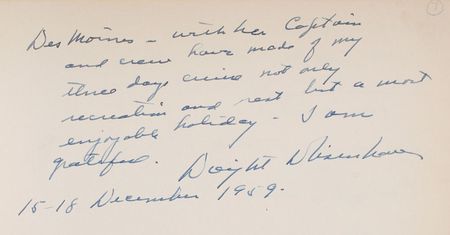 Des Moines - with her Captain
and crew have made of my
three days cruise not only
recreation and rest but a most
enjoyable holiday - I am
grateful.
Dwight D Eisenhower
15-18 December 1959.